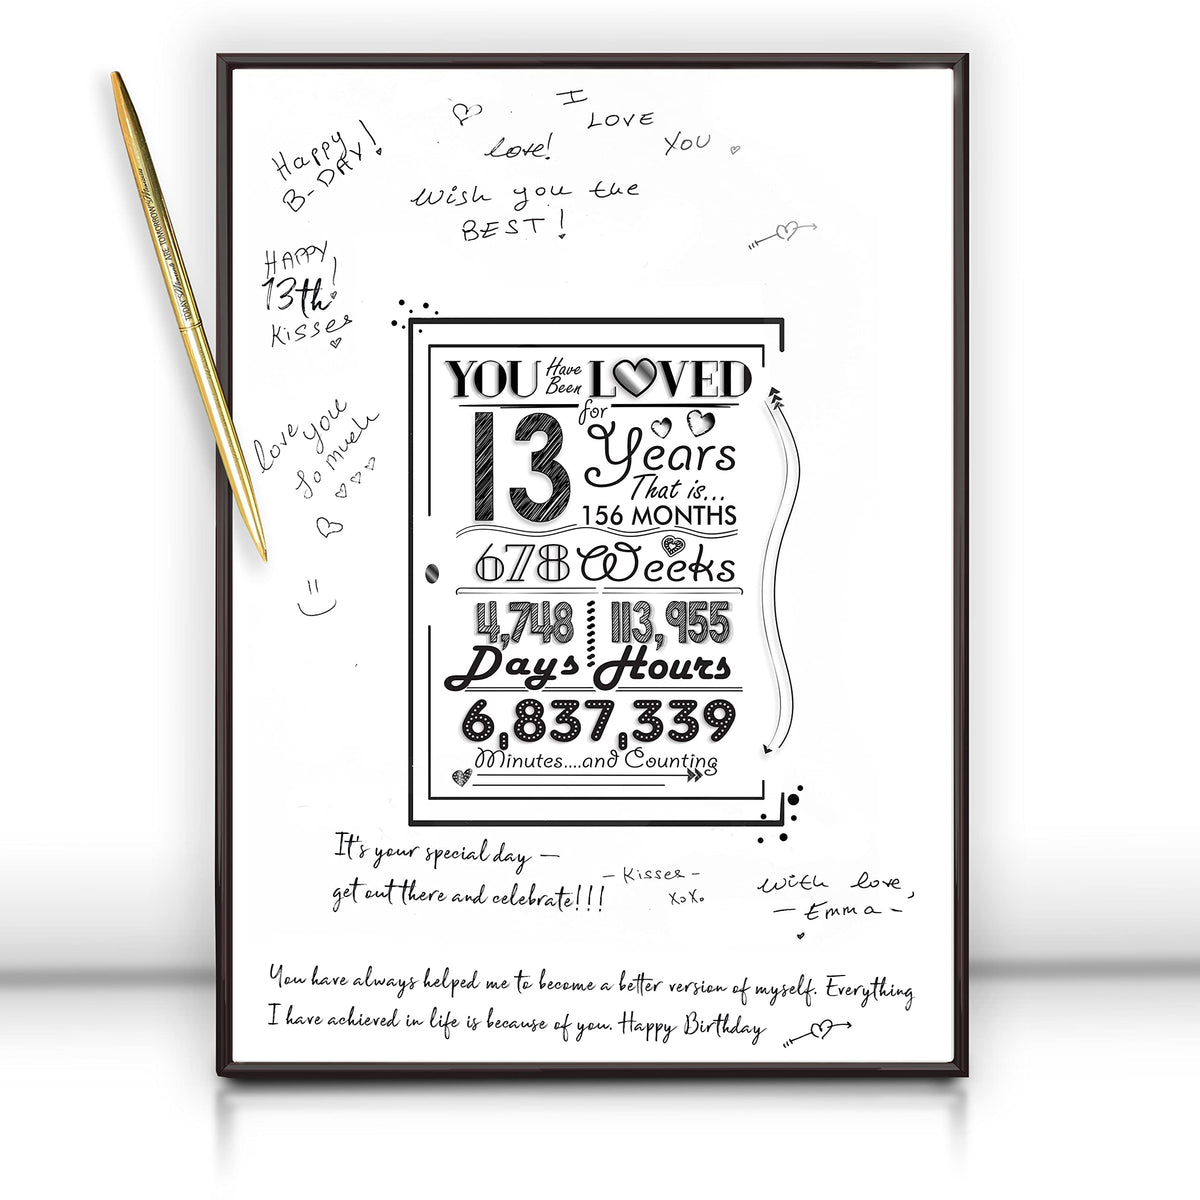 I
LOVE
YOU
love!
Happy
B-DAY!
Wish you the
BEST!
HAPPY
13th!
Kisses
love you
so much
TODAY'S Moments ARE TOMORROW'S Memories
YOU Have Been LOVED
for
13 Years
That is...
156 MONTHS
678 Weeks
4,748 113,955
Days Hours
6,837,339
Minutes....and Counting
It's your special day –
get out there and celebrate!!!
- Kisses -
XoXo
With love,
- Emma -
You have always helped me to become a better version of myself. Everything
I have achieved in life is because of you. Happy Birthday